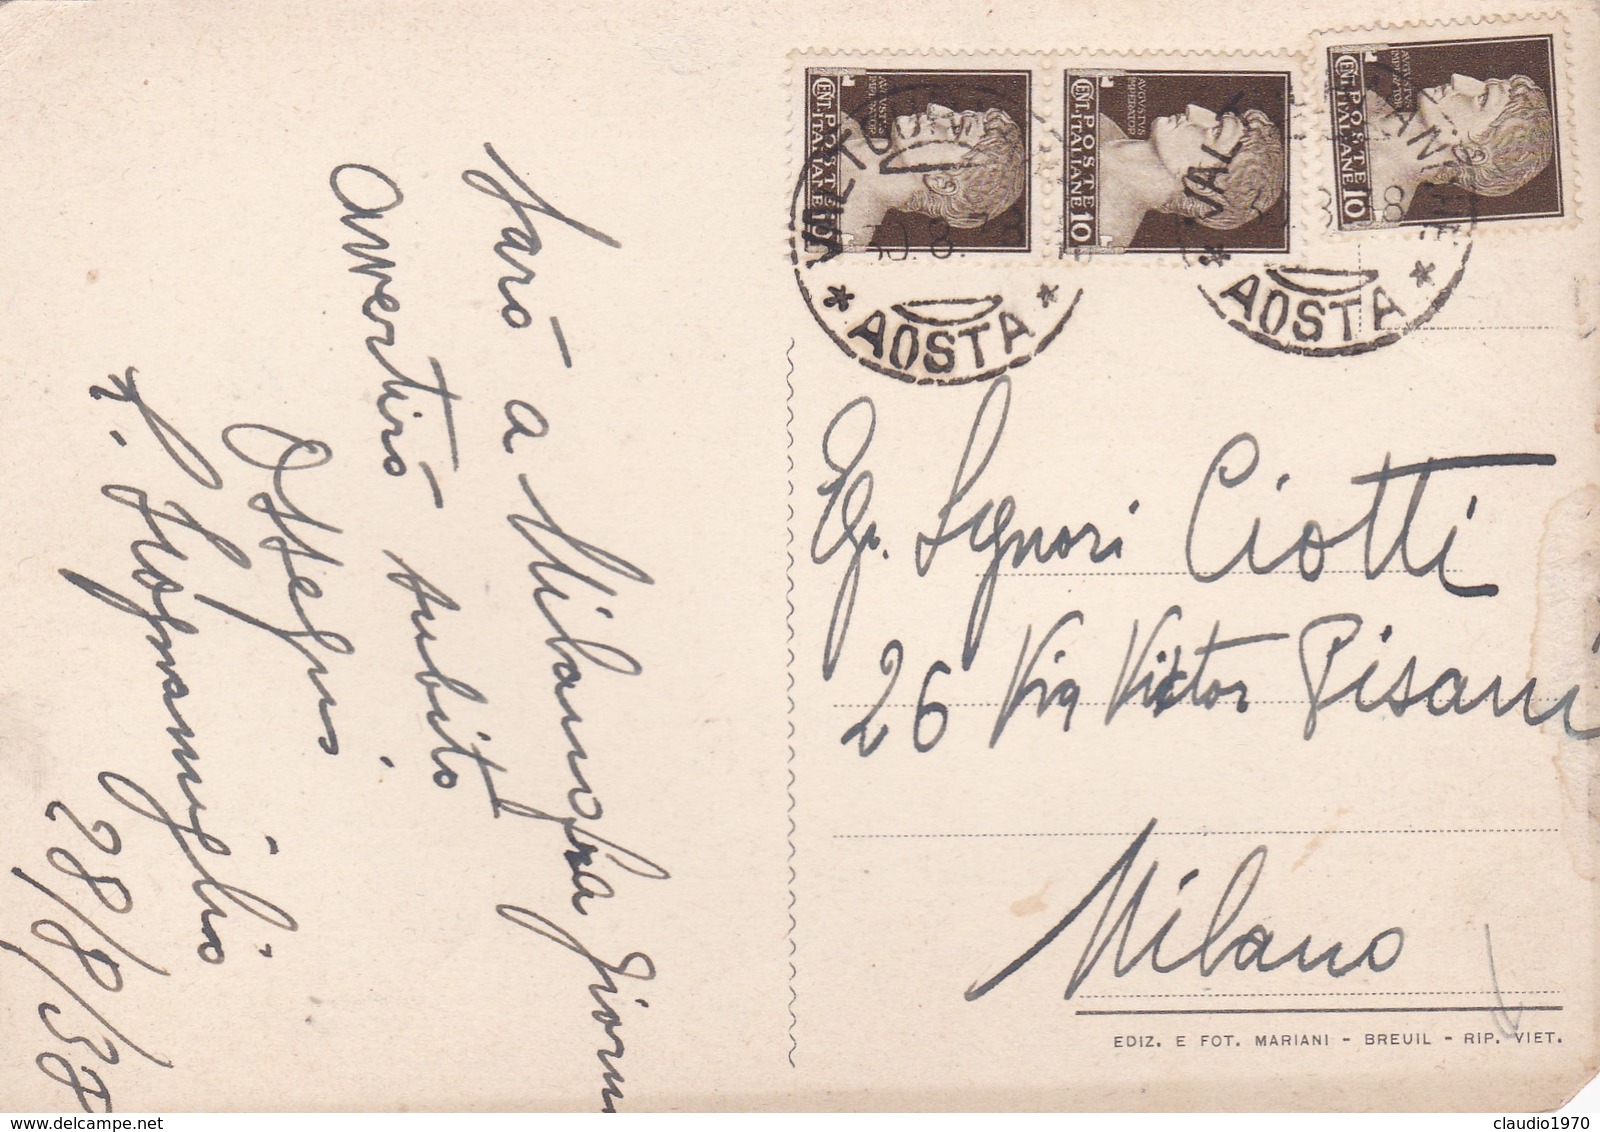 Sarò a Milano fra giorni
avvertirò subito.
Ossequi
28/8/38
AVGVSTVS
IMPERATOR
CENT. POSTE 10
ITALIANE
AVGVSTVS
IMPERATOR
CENT. POSTE 10
ITALIANE
AVGVSTVS
IMPERATOR
CENT. POSTE 10
ITALIANE
* AOSTA *
* AOSTA *
Eg. Signori Ciotti
26 Via Victor Pisani
Milano
EDIZ. E FOT. MARIANI - BREUIL - RIP. VIET.
claudio1970